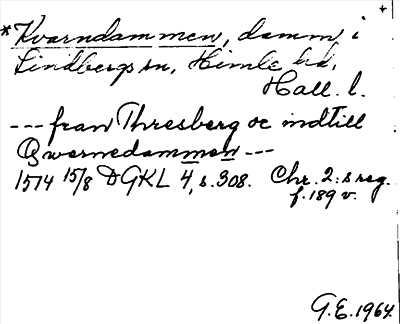 +
*Kvarndammen, damm i
Lindbergs sn, Himle hd,
Hall. l.
--- fran Thresberg oc indtill
Qwernedammen ---
1514 15/8 DGKL 4, s. 308. Chr. 2:s reg.
f. 189 v.
G.E. 1964.